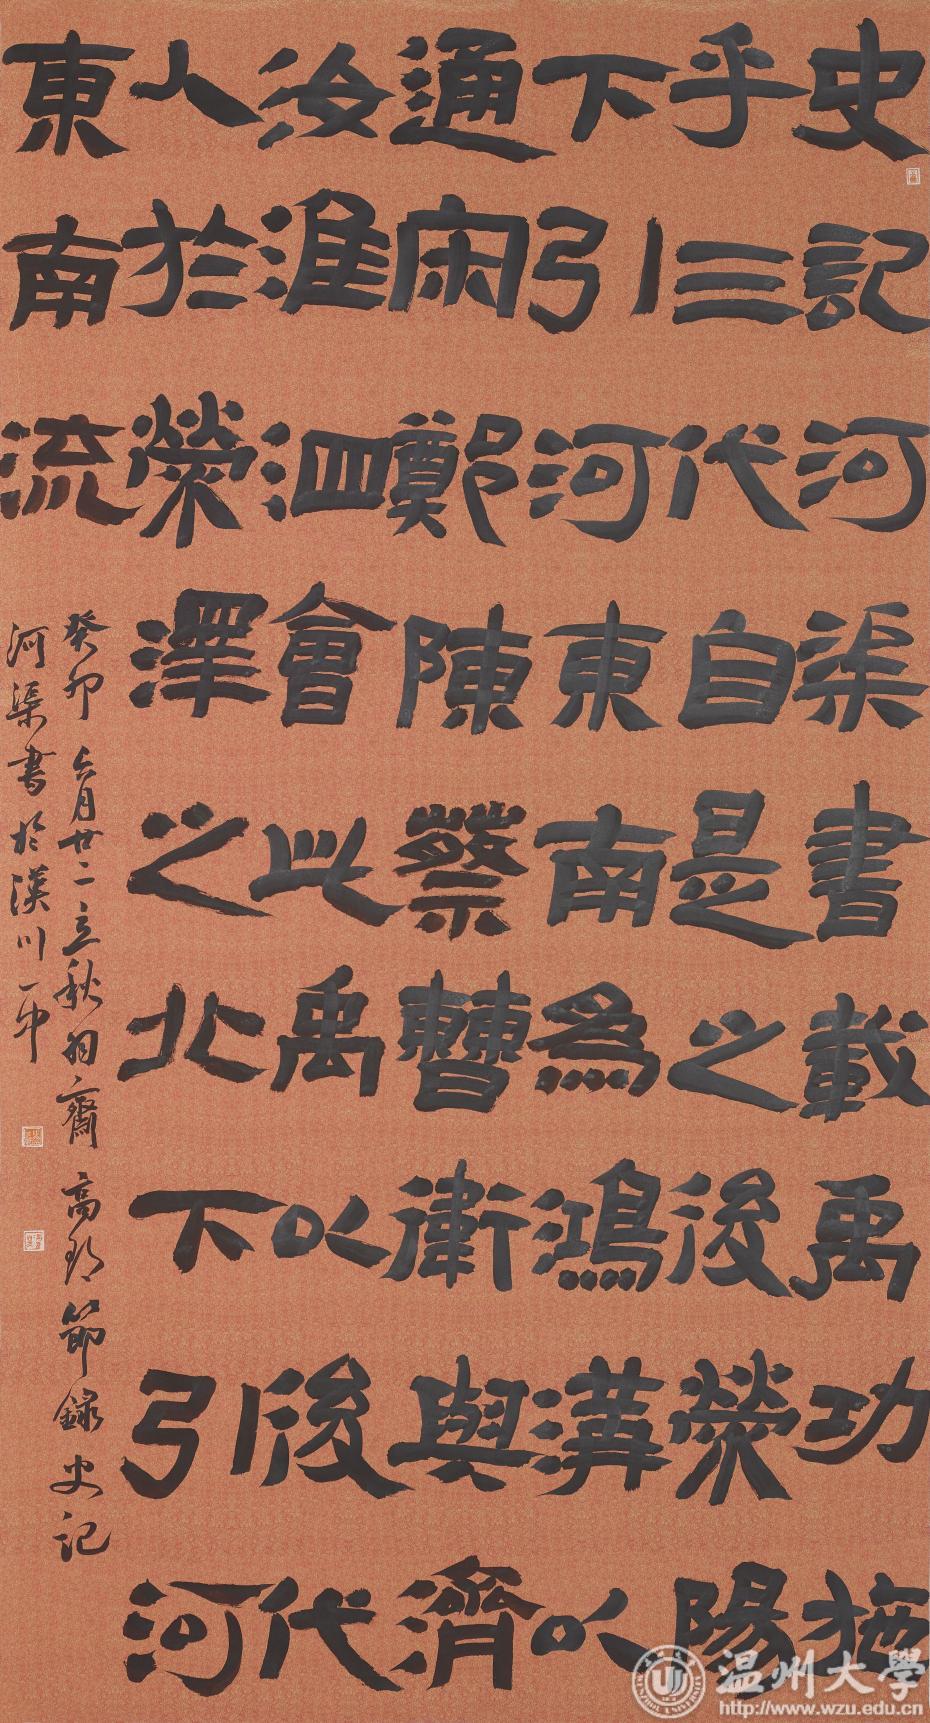 史記河渠書載禹功施
乎三代自是之後滎陽
下引河東南爲鴻溝以
通宋鄭陳蔡曹衛與濟
汝淮泗會此禹以後代
人於滎澤之北下引河
東南流
癸卯六月廿二立秋 齋高 節録史记
河渠書於漢川一
温州大學
http://www.wzu.edu.cn